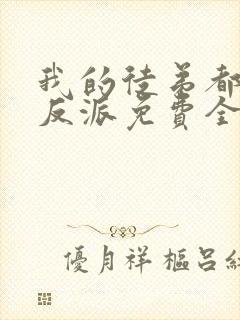 我的徒弟都
反派免費全
優月祥樞呂